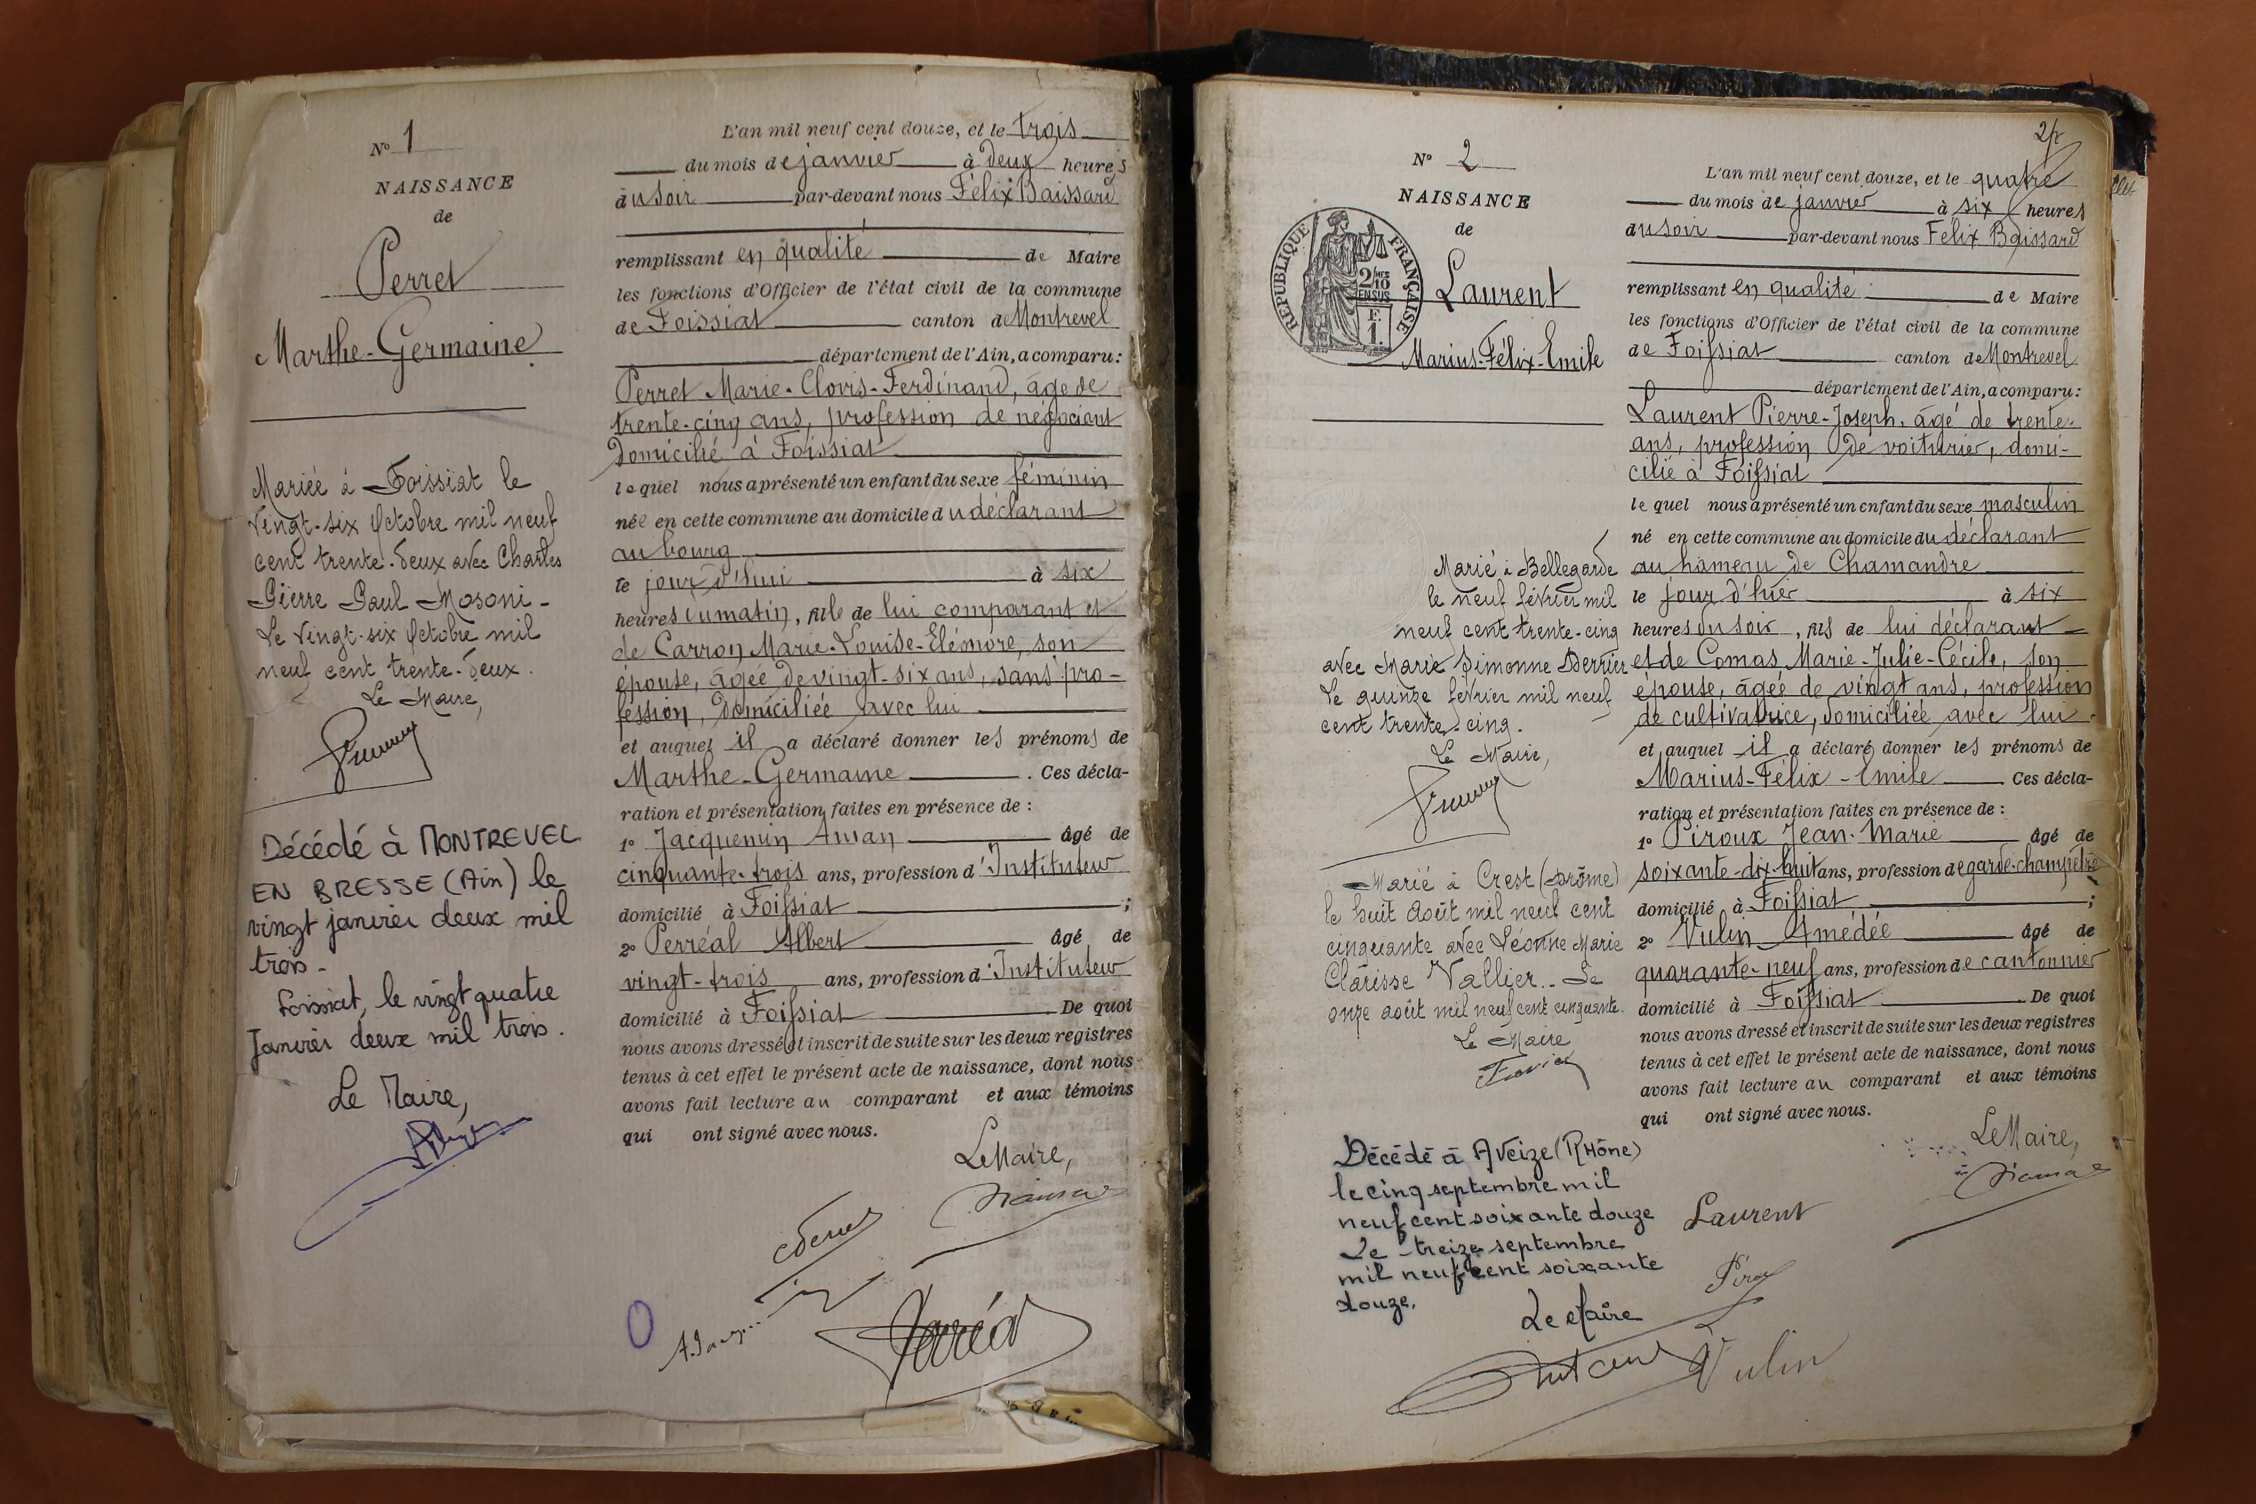 N° 1
NAISSANCE
de
Perret
Marthe-Germaine
Mariée à Foissiat le
vingt-six Octobre mil neuf
cent trente-deux avec Charles
Pierre Paul Mosoni-
Le vingt-six Octobre mil
neuf cent trente-deux.
Le Maire,
Décédé à MONTREVEL
EN BRESSE (Ain) le
vingt janvier deux mil
trois-
Foissiat, le vingt quatre
Janvier deux mil trois.
Le Maire,
L'an mil neuf cent douze, et le trois
du mois de janvier à deux heures
du soir par-devant nous Félix Baissard
remplissant en qualité de Maire
les fonctions d'Officier de l'état civil de la commune
de Foissiat canton de Montrevel
département de l'Ain, a comparu:
Perret Marie-Clovis-Ferdinand, âgé de
trente-cinq ans, profession de négociant
domicilié à Foissiat
lequel nous a présenté un enfant du sexe féminin
née en cette commune au domicile du déclarant
au bourg
le jour d'hui à six
heures du matin, fille de lui comparant et
de Carron Marie-Louise-Eléonore, son
épouse, âgée de vingt-six ans, sans pro-
fession, domiciliée avec lui
et auquel il a déclaré donner les prénoms de
Marthe-Germaine. Ces décla-
ration et présentation faites en présence de :
1° Jacquemin Aman âgé de
cinquante-trois ans, profession d'Instituteur
domicilié à Foissiat ;
2° Perréal Albert âgé de
vingt-trois ans, profession d'Instituteur
domicilié à Foissiat De quoi
nous avons dressé et inscrit de suite sur les deux registres
tenus à cet effet le présent acte de naissance, dont nous
avons fait lecture au comparant et aux témoins
qui ont signé avec nous.
Le Maire,
2
N° 2
NAISSANCE
de
RÉPUBLIQUE FRANÇAISE
2/10
EN SUS
F.
1.
Laurent
Marius-Félix-Emile
Marié à Bellegarde
le neuf février mil
neuf cent trente-cinq
avec Marie Simonne Derrier
Le quinze février mil neuf
cent trente-cinq.
Le Maire,
Marié à Crest (Drôme)
le huit Août mil neuf cent
cinquante avec Léonne Marie
Clarisse Vallier.. Le
onze août mil neuf cent cinquante.
Le Maire
Décédé à Aveize (Rhône)
le cinq septembre mil
neuf cent soixante douze
Le treize septembre
mil neuf cent soixante
douze.
Le Maire
L'an mil neuf cent douze, et le quatre
du mois de janvier à six heures
du soir par-devant nous Félix Baissard
remplissant en qualité de Maire
les fonctions d'Officier de l'état civil de la commune
de Foissiat canton de Montrevel
département de l'Ain, a comparu:
Laurent Pierre-Joseph, âgé de trente-
ans, profession de voiturier, domi-
cilié à Foissiat
lequel nous a présenté un enfant du sexe masculin
né en cette commune au domicile du déclarant
au hameau de Chamandre
le jour d'hier à six
heures du soir, fils de lui déclarant
et de Comas Marie-Julie-Cécile, son
épouse, âgée de vingt ans, profession
de cultivatrice, domiciliée avec lui.
et auquel il a déclaré donner les prénoms de
Marius-Félix-Emile Ces décla-
ration et présentation faites en présence de :
1° Piroux Jean-Marie âgé de
soixante-dix-huit ans, profession de garde-champêtre
domicilié à Foissiat ;
2° Vulin Amédée âgé de
quarante-neuf ans, profession de cantonnier
domicilié à Foissiat. De quoi
nous avons dressé et inscrit de suite sur les deux registres
tenus à cet effet le présent acte de naissance, dont nous
avons fait lecture au comparant et aux témoins
qui ont signé avec nous.
Le Maire,
Laurent
Vulin